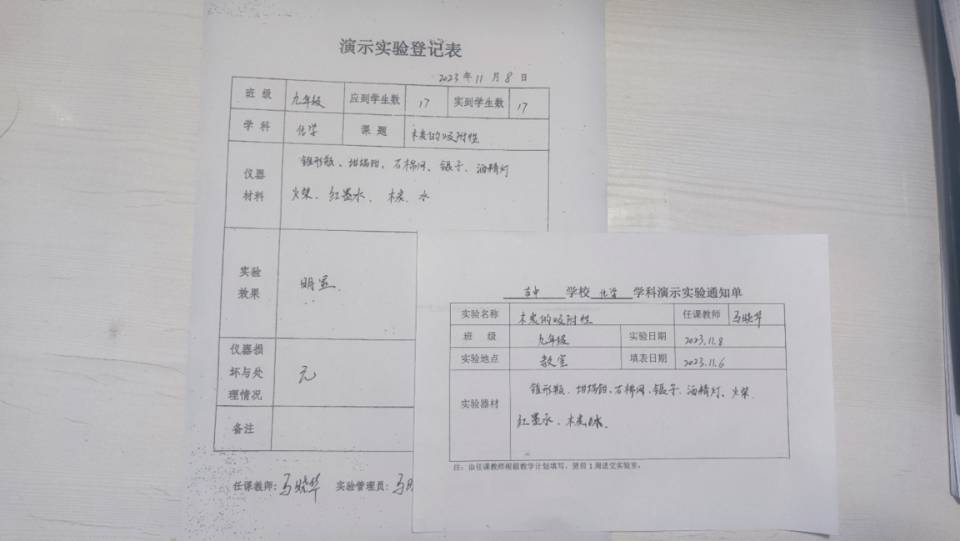 演示实验登记表
2023年11月8日
班 级 九年级 应到学生数 17 实到学生数 17
学 科 化学 课 题 木炭的吸附性
仪器材料 锥形瓶、坩埚钳、石棉网、镊子、酒精灯
火柴、红墨水、木炭、水
实验效果 明显
仪器损坏与处理情况 无
备注
任课教师：马晓华 实验管理员：马
学校 化学 学科演示实验通知单
实验名称 木炭的吸附性 任课教师 马晓华
班 级 九年级 实验日期 2023.11.8
实验地点 教室 填表日期 2023.11.6
实验器材 锥形瓶、坩埚钳、石棉网、镊子、酒精灯、火柴
红墨水、木炭、水
注：由任课教师根据教学计划填写，提前1周送交实验室。